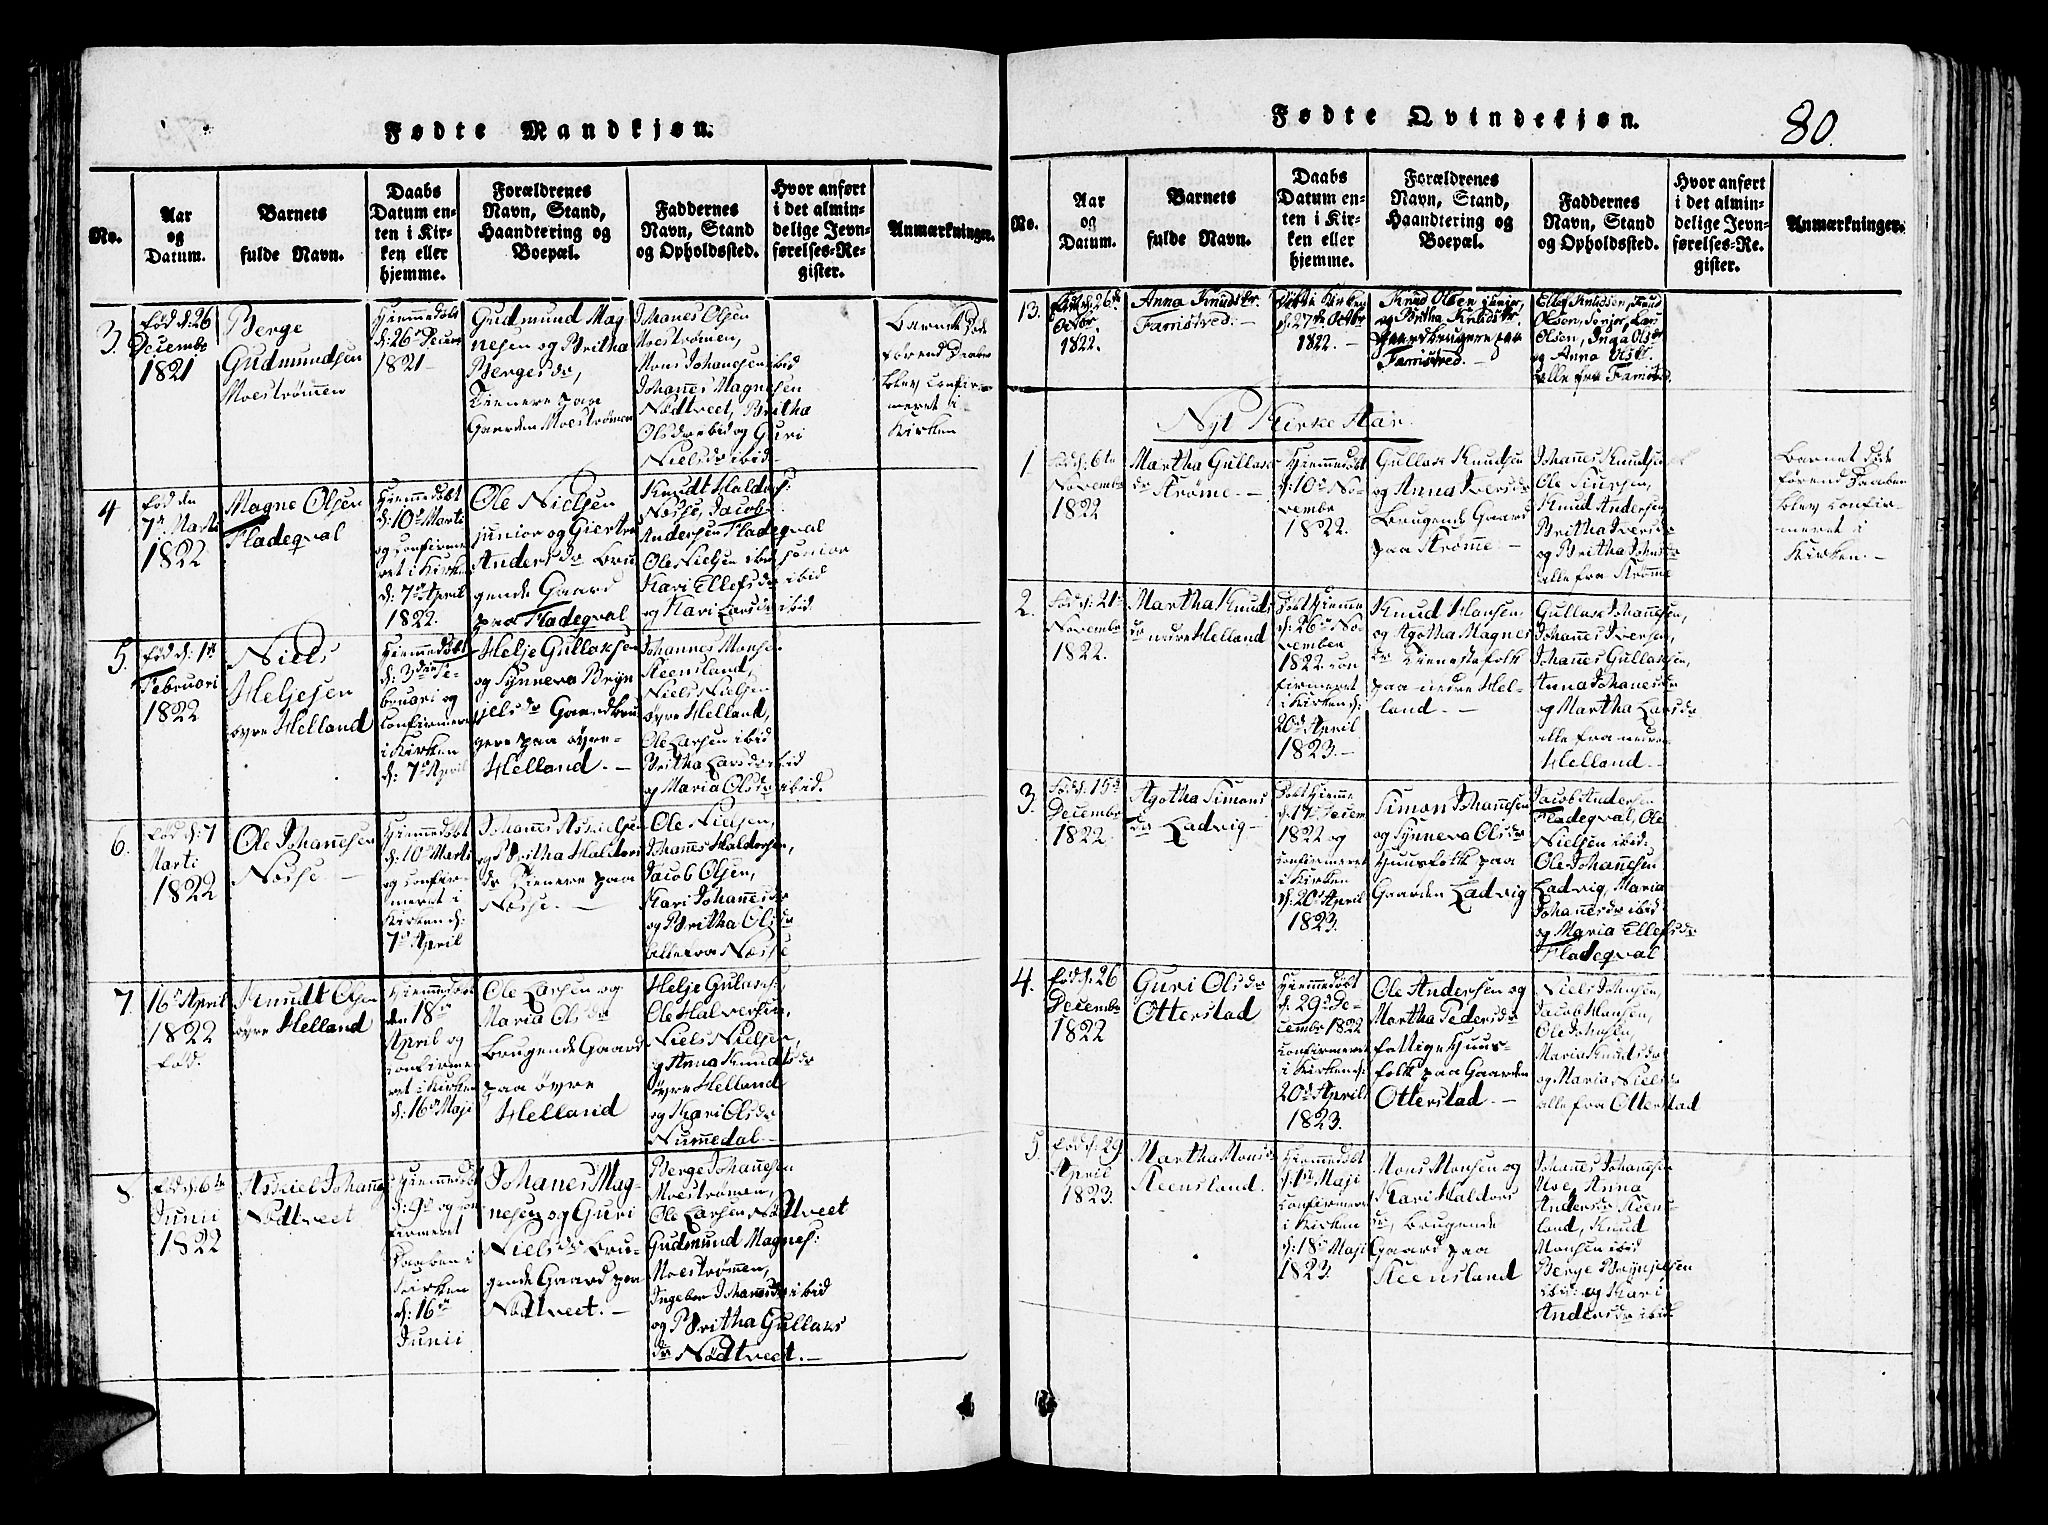 Fødte Mandkjøn.
No.
Aar
og
Datum.
Barnets
fulde Navn.
Daabs
Datum en-
ten i Kir-
ken eller
hjemme.
Forældrenes
Navn, Stand,
Haandtering og
Boepæl.
Faddernes
Navn, Stand
og Opholdssted.
Hvor anført
i det almin-
delige Jevn-
førelses-Re-
gister.
Anmærkninger.
3.
Fød d: 26
Decembr
1821
Berge
Gudmundsen
Moestrømmen
Hiemmedøbt
d: 26de Decembr
1821 -
Gudmund Mag-
nesen og Britha
Bergesdr,
Tienere paa
Gaarden Moestrømen
Johanes Olsen
Moestrømen,
Mons Johanesen ibid
Johanes Magnesen
Nødtveet, Britha
Olsdr ibid og Guri
Nielsdr ibid -
Barnet døde
førend Daaben
blev confir-
meret i
Kirken
4
Fød den
7de Marti
1822
Magne Olsen
Fladeqval
Hiemmedøbt
d: 10de Marti
og confirme
ret i Kirken
d: 7de April
1822.
Ole Nielsen
junior og Giertru
Andersdr bru
gende Gaard
paa Fladeqval
Knudt Haldors:
Nosse, Jacob
Andersen Fladeqval
Ole Nielsen ibid senior
Kari Ellefsdr ibid
og Kari Larsdr ibid
5.
Fød d: 1ste
Februari
1822
Niels
Heljesen
øvre Helland
Hiemmedøbt
d: 3die Fe-
bruari og
confirmere
i Kirken
d: 7de April
Helje Gullaksen
og Synneva Bryn
jelsdr Gaardbru
gere paa øvre-
Helland. -
Johannes Monsen
Steensland,
Niels Nielsen
øvre Helland,
Ole Larsen ibid
Britha Larsdr ibid
og Maria Olsdr ibid.
6.
Fød d: 7
Marti
1822
Ole Johannesen
Nosse. -
Hiemmedøbt
d: 10de Marti
og confir-
meret i
Kirken d:
7de April
Johannes Askielsen
og Britha Haldors
dr Tienere paa
Nosse. -
Ole Nielsen,
Johannes Haldorsen,
Jacob Olsen,
Kari Johannesdr
og Britha Olsdr
alle fra Nosse
7.
16de April
1822
fød.
Knudt Olsen
øvre Helland
Hiemmedøbt
den 18de
April og
confirme
ret i Kirken
d: 16de Maji
Ole Larsen og
Maria Olsdr
brugende Gaard
paa øvre
Helland
Helje Gulaks:
Ole Halversen,
Niels Nielsen,
og Anna Knudtsdr
øvre Helland
og Kari Olsdr
Numedal -
8.
Fød d: 6te
Junii
1822
Askiel Johannes
Nødtveet
Hiemmedøbt
d: 9de og con
firmeret
Daaben i
Kirken
d: 16de
Junii
Johanes Mag-
nesen og Guri
Nielsdr bru-
gende Gaard paa
Nødtveet. -
Berge Johannesen
Moestrømen,
Ole Larsen Nødtveet
Gudmund Magnes:
Moestrømen,
Ingebor Johanesdr ibid
og Britha Gullaks
dr Nødtveet. -
Fødte Qvindekjøn.
80.
No.
Aar
og
Datum.
Barnets
fulde Navn.
Daabs
Datum en-
ten i Kir-
ken eller
hjemme.
Forældrenes
Navn, Stand,
Haandtering og
Boepæl.
Faddernes
Navn, Stand
og Opholdssted.
Hvor anført
i det almin-
delige Jevn-
førelses-Re-
gister.
Anmærkninger.
13.
Fød d: 26de
Octobr
1822.
Anna Knudsdr.
Famestved. -
Døbt i Kirken
d: 27de Octbr
1822. -
Knud Olsen junior,
og Britha Knudsdr.
Gaardbrugere paa
Famestved. -
Ellef Knudsen, Knud
Olsen, senior, Lars
Olsen, Inga Olsdr
og Anna Olsdr.
alle fra Famestved.
Nyt Kirke Aar.
1
Fød d: 6te
Novembr
1822
Martha Gullaks
dr Strøme. -
Hiemmedøbt
d: 10de No-
vembr
1822.
Gullak Knudsen
og Anna Iversdr
brugende Gaard
paa Strømme. -
Johannes Knudsen
Ole Siursen,
Knud Andersen
Britha Iversdr
og Britha Johnsdr
alle fra Strømme
Barnet døde
førend Daaben
blev confir-
meret i
Kirken. -
2.
Fød d: 21de
Novembr
1822.
Martha Knuds
dr nedre Helland
Døbt Hiemme
d: 26de No-
vember
1822 con
firmeret
i Kirken d:
20de April
1823. -
Knud Hansen
og Agotha Magnes
dr Tienestefolk
paa nedre Hel-
land. -
Gullak Johannesen,
Johannes Iversen,
Johannes Gullaksen,
Anna Johanesdr
og Martha Larsdr
alle fra nedre
Helland. -
3.
Fød d: 15de
Decembr
1822.
Agotha Simons
dr Ladvig -
Døbt Hiemme
d: 17de Decem
1822 og
confirmeret
i Kirken
d: 20de April
1823.
Simon Johannesen
og Synneva Olsdr
Huusfolk paa
Gaarden Ladvig
Jacob Andersen
Fladeqval, Ole
Nielsen ibid:
Ole Johannesen
Ladvig, Maria
Johanesdr ibid
og Maria Ellefsdr
Fladeqval
4.
Fød d: 26
Decembr
1822
Guri Olsdr
Otterstad
Hiemmedøbt
d: 29de De-
cembr 1822
confirmeret
i Kirken d:
20de April
1823.
Ole Andersen og
Martha Pedersdr
fattige Huus-
folk paa Gaarden
Otterstad. -
Niels Johnsen,
Jacob Hansen,
Ole Johnsen,
Maria Knutsdr
og Maria Nielsdr
alle fra Otterstad
5.
Fød d: 29
April
1823.
Martha Monsdr
Steensland.
Hiemmedøbt
d: 1ste Maji
confirmeret
i Kirken
d: 18de Maji
1823.
Mons Monsen og
Kari Haldors
dr, brugende
Gaard paa
Steensland
Johanes Johannesen
Moe, Anna
Andersdr Steens-
land, Knud
Monsen ibid
Berge Brynjelsen
ibid: og Kari
Andersdr ibid